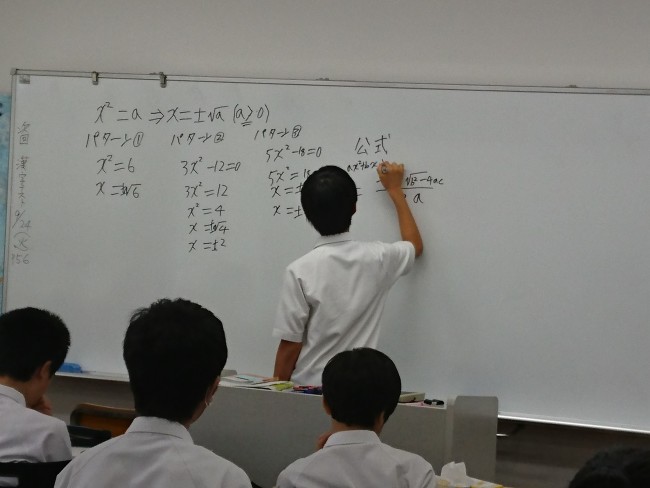 x² = a ⇒ x = ±√a (a ≧ 0)
パターン①
x² = 6
x = ±√6
パターン②
3x² - 12 = 0
3x² = 12
x² = 4
x = ±√4
x = ±2
パターン③
5x² - 18 = 0
5x² = 18
x = ±
x = ±
公式
ax² + bx
√b² - 4ac
a
次回 漢字テスト 9/24
156